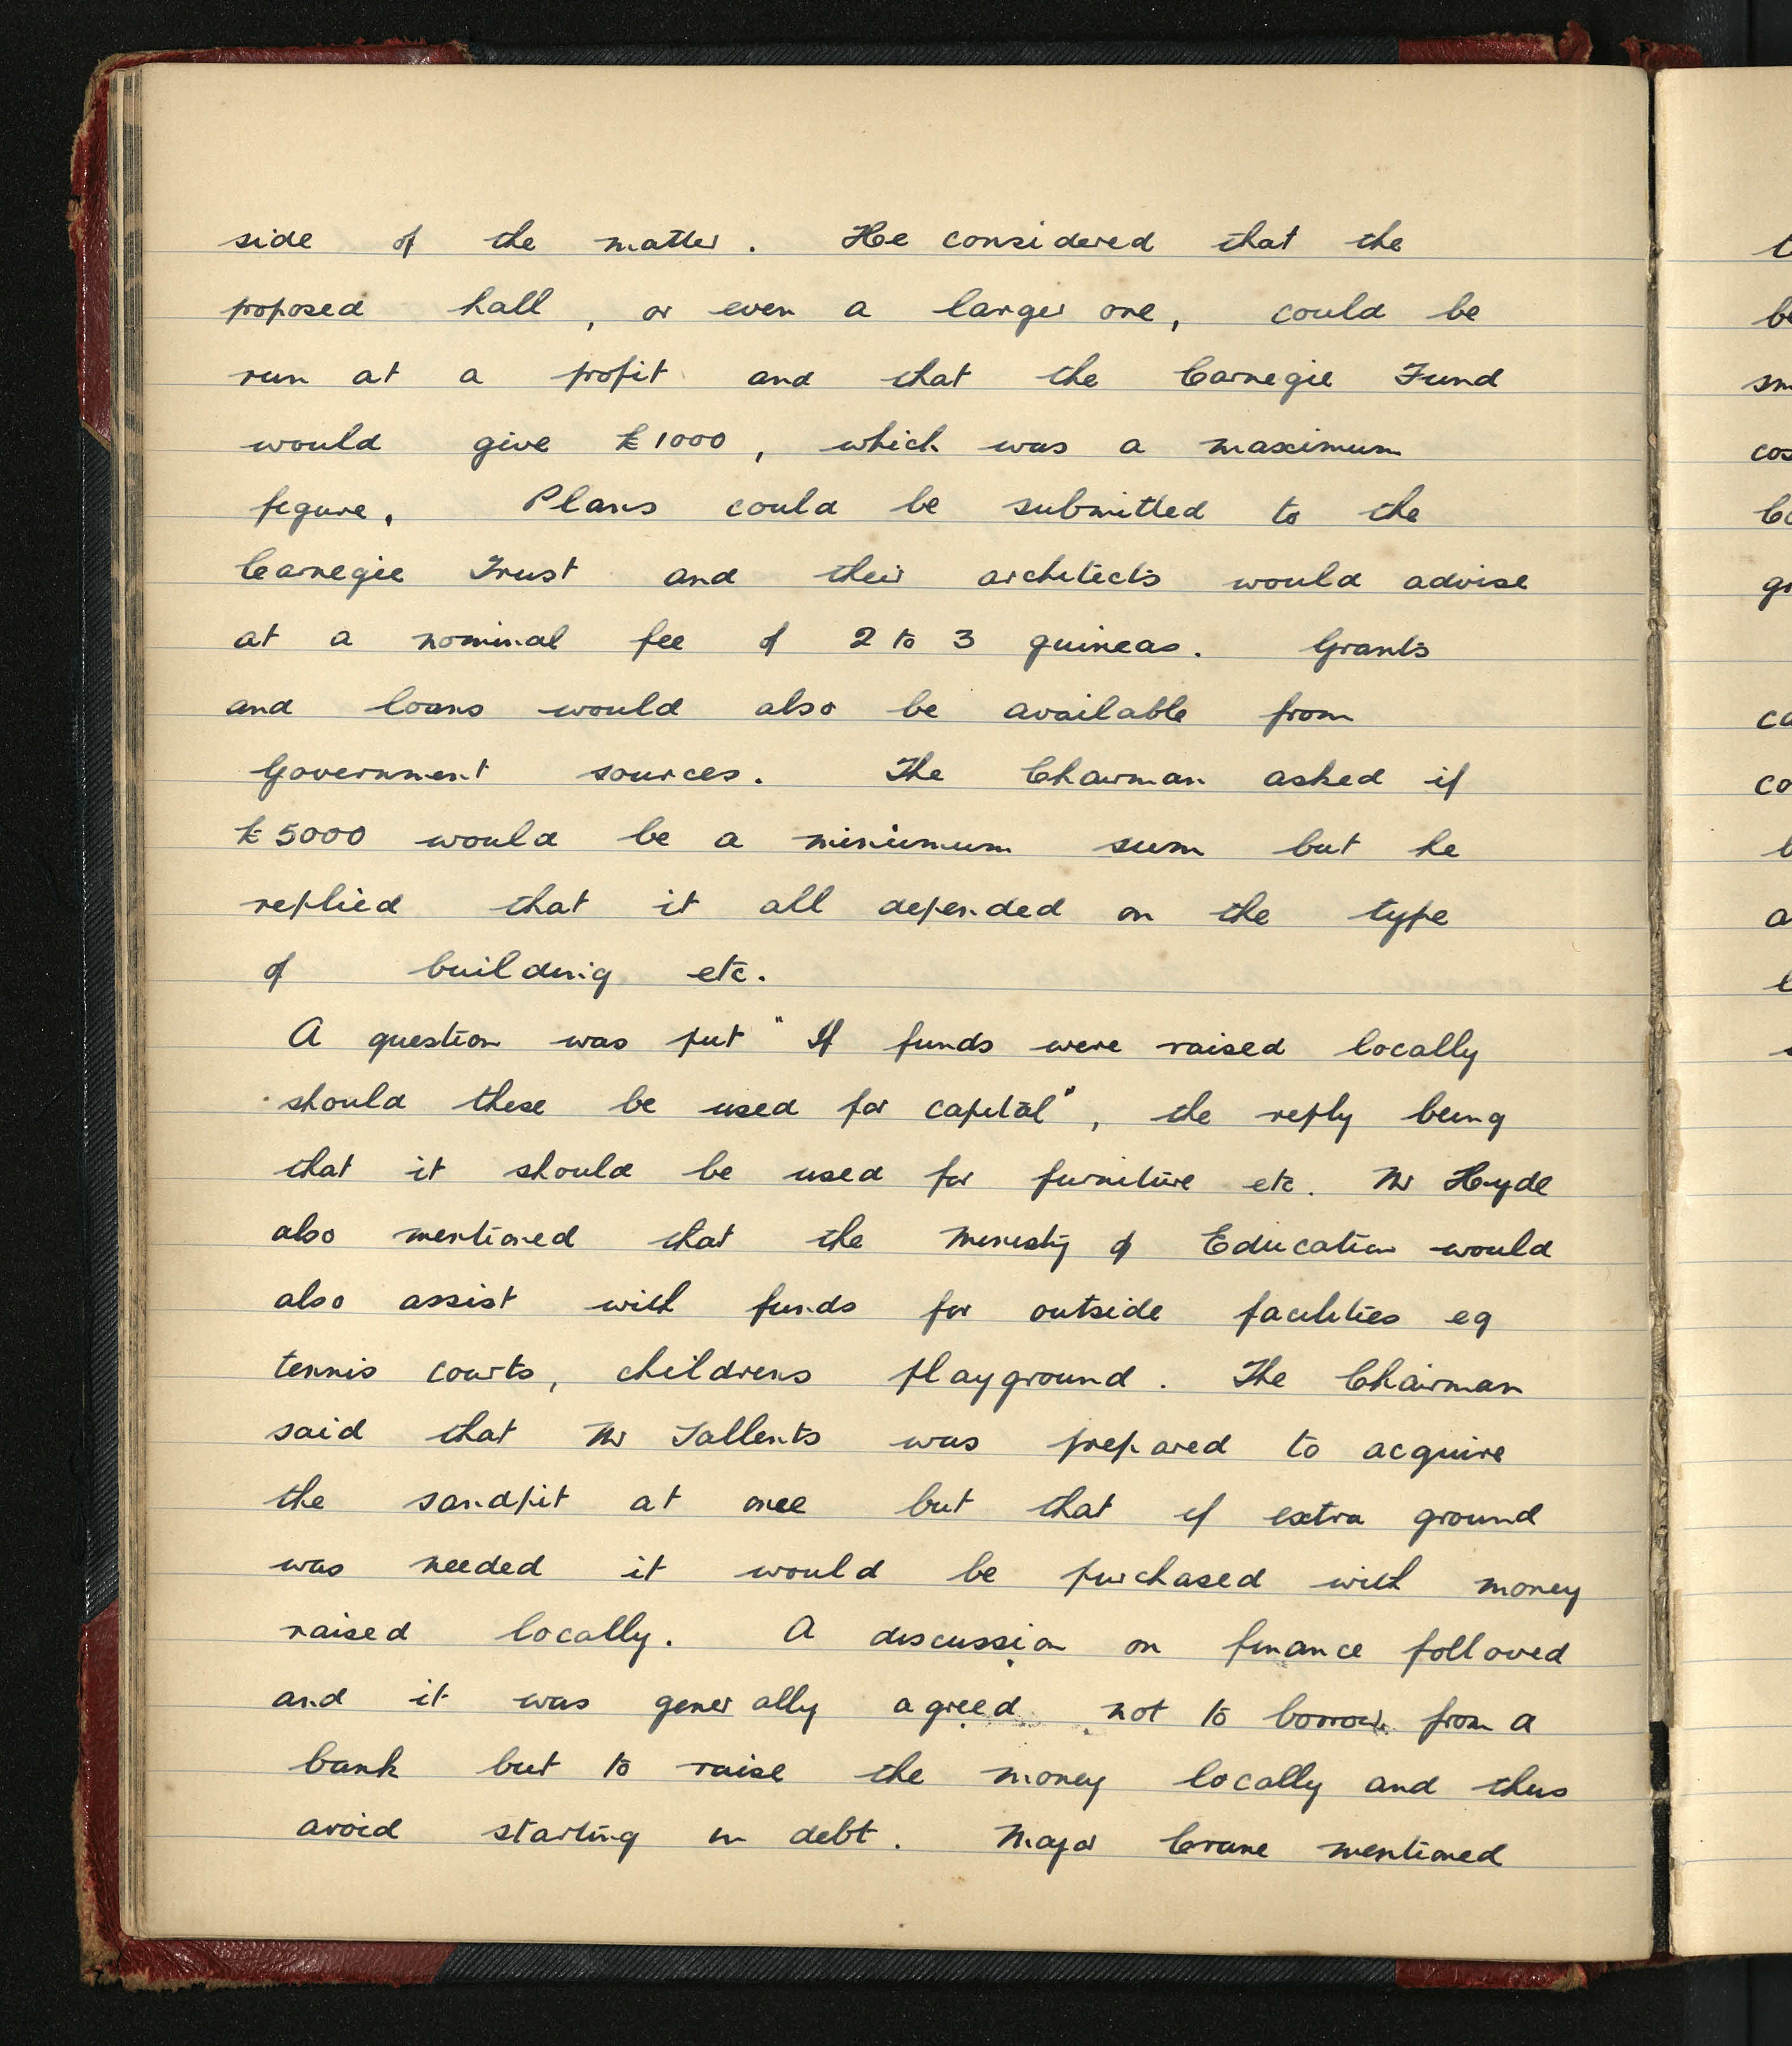 side of the matter. He considered that the
proposed hall, or even a larger one, could be
run at a profit and that the Carnegie Fund
would give £1000, which was a maximum
figure. Plans could be submitted to the
Carnegie Trust and their architects would advise
at a nominal fee of 2 to 3 guineas. Grants
and loans would also be available from
Government sources. The Chairman asked if
£5000 would be a minimum sum but he
replied that it all depended on the type
of building etc.
A question was put "If funds were raised locally
should these be used for capital", the reply being
that it should be used for furniture etc. Mr Hyde
also mentioned that the Ministry of Education would
also assist with funds for outside facilities eg
tennis courts, childrens playground. The Chairman
said that Mr Tallents was prepared to acquire
the sandpit at once but that if extra ground
was needed it would be purchased with money
raised locally. A discussion on finance followed
and it was generally agreed not to borrow from a
bank but to raise the money locally and thus
avoid starting in debt. Major Crane mentioned